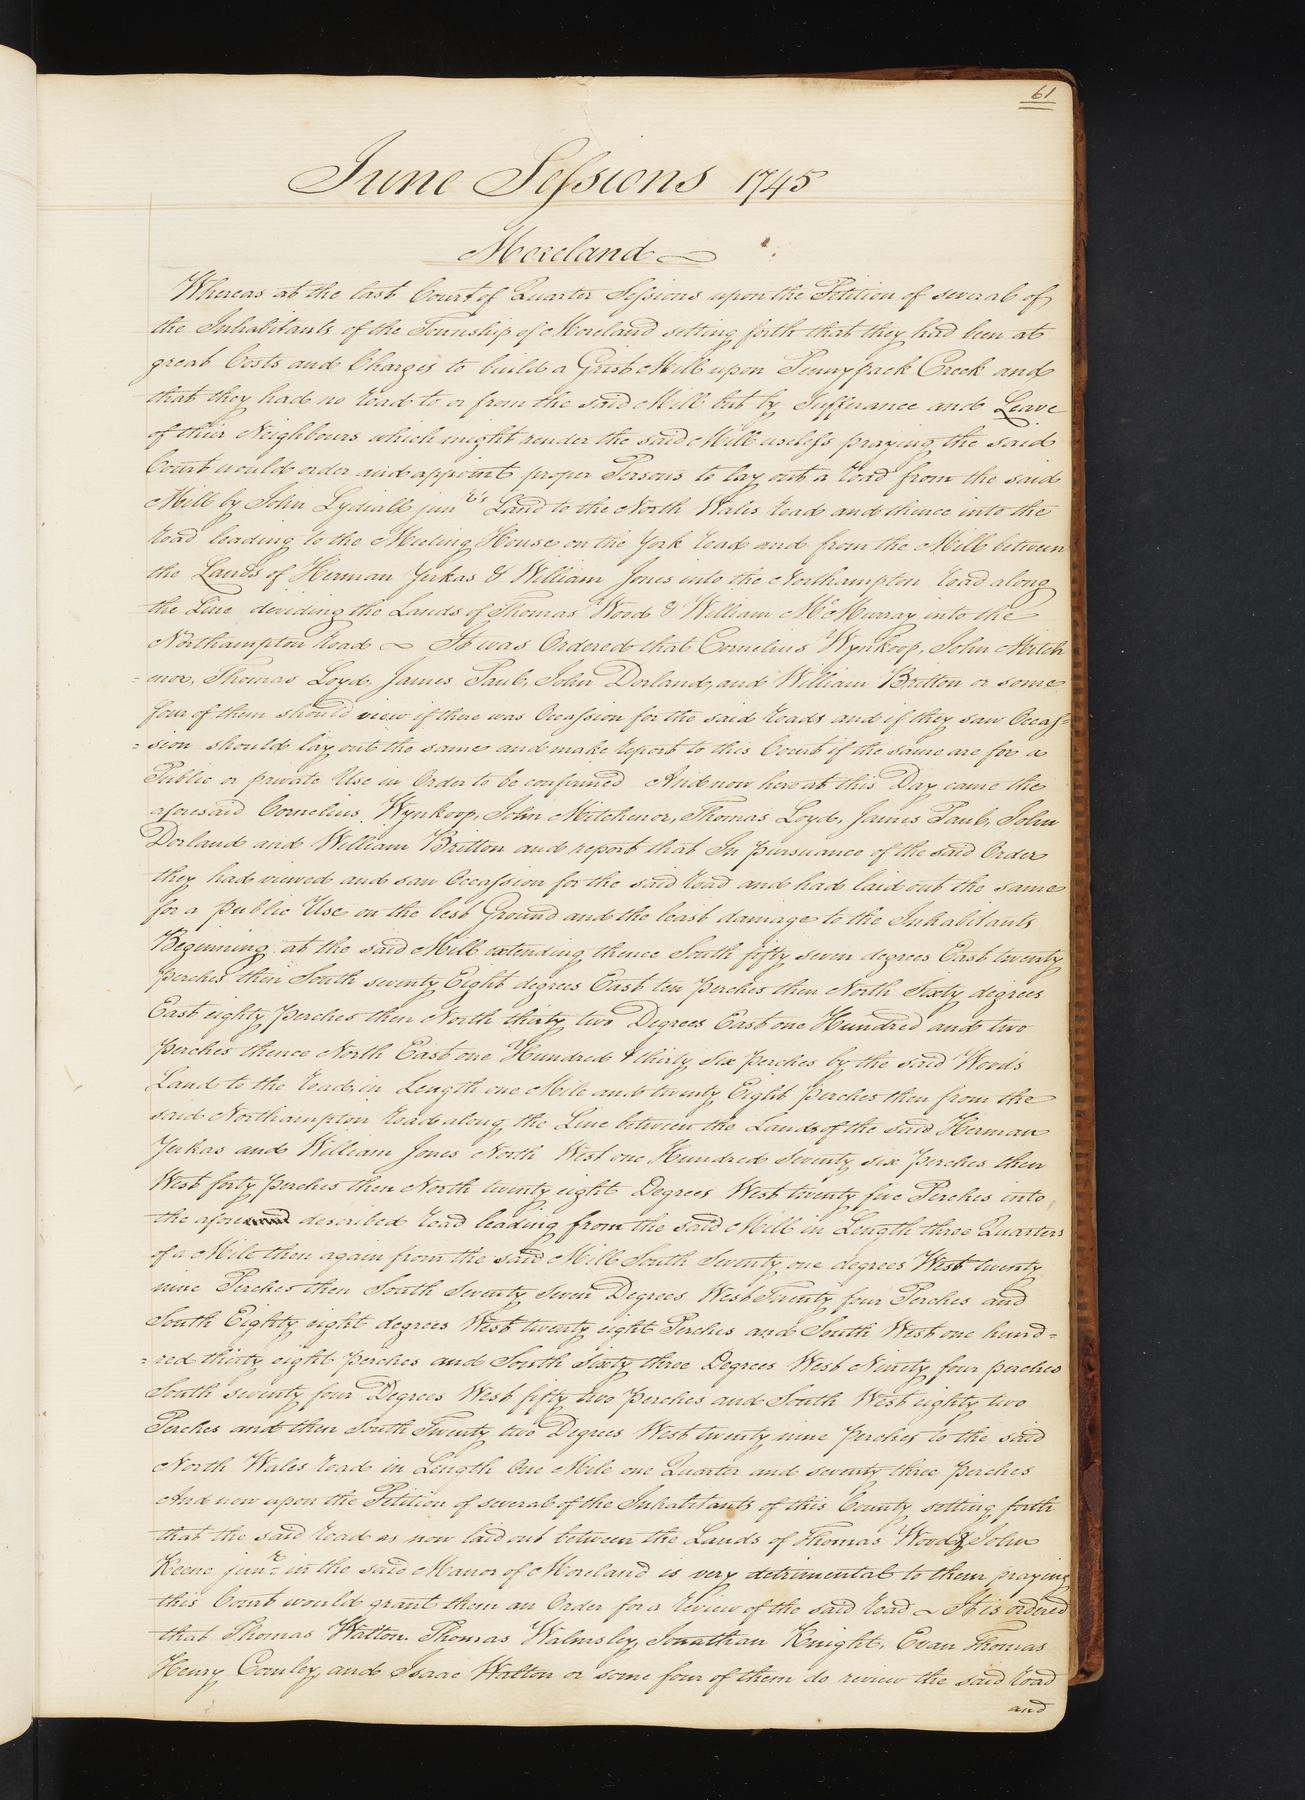 61
June Sessions 1745
Moreland
Whereas at the last Court of Quarter Sessions upon the Petition of several of
the Inhabitants of the Township of Moreland setting forth that they had been at
great Costs and Charges to build a Grist Mill upon Pennypack Creek and
that they had no road to or from the said Mill but by Sufferance and Leave
of their Neighbours which might render the said Mill useless praying the said
Court would order and appoint proper Persons to lay out a road from the said
Mill by John Lydiall junr's Land to the North Wales road and thence into the
road leading to the Meeting House on the York road and from the Mill between
the Lands of Herman Yerkas & William Jones into the Northampton road along
the Line dividing the Lands of Thomas Wood & William McMurray into the
Northampton road It was Ordered that Cornelius Wynkoop, John Mitch
=enor, Thomas Loyd, James Paul, John Dorland, and William Britton or some
four of them should view if there was Occassion for the said roads and if they saw Occas=
=sion should lay out the same and make report to this Court if the same are for a
Public or private Use in Order to be confirmed And now here at this Day came the
aforesaid Cornelius Wynkoop, John Mitchenor, Thomas Loyd, James Paul, John
Dorland and William Britton and report that In pursuance of the said Order
they had viewed and saw Occassion for the said road and had laid out the same
for a public Use on the best Ground and the least damage to the Inhabitants
Beginning at the said Mill extending thence South fifty seven degrees East twenty
perches then South seventy Eight degrees East ten perches then North Sixty degrees
East eighty perches then North thirty two Degrees East one Hundred and two
perches thence North East one Hundred & thirty six perches by the said Wood's
Land to the road, in Length one Mile and twenty Eight perches then from the
said Northampton road along the Line between the Lands of the said Herman
Yerkas and William Jones North West one Hundred Seventy six perches then
West forty perches then North twenty eight Degrees West twenty five Perches into
the afore described road leading from the said Mill in Length three Quarters
of a Mile then again from the said Mill South Seventy one degrees West twenty
nine Perches then South Seventy Seven Degrees West Twenty four Perches and
South Eighty eight degrees West twenty eight Perches and South West one hund=
=red thirty eight perches and South sixty three Degrees West Ninety four perches
South seventy four Degrees West fifty two perches and South West eighty two
Perches and then South Twenty two Degrees West twenty nine perches to the said
North Wales road in Length One Mile one Quarter and seventy three perches
And now upon the Petition of several of the Inhabitants of this County setting forth
that the said road as now laid out between the Lands of Thomas Wood & John
Keene junr. in the said Manor of Moreland is very detrimental to them praying
this Court would grant them an Order for a review of the said road It is ordered
that Thomas Watton Thomas Walmsley, Jonathan Knight, Evan Thomas
Henry Comley, and Isaac Walton or some four of them do review the said road
and